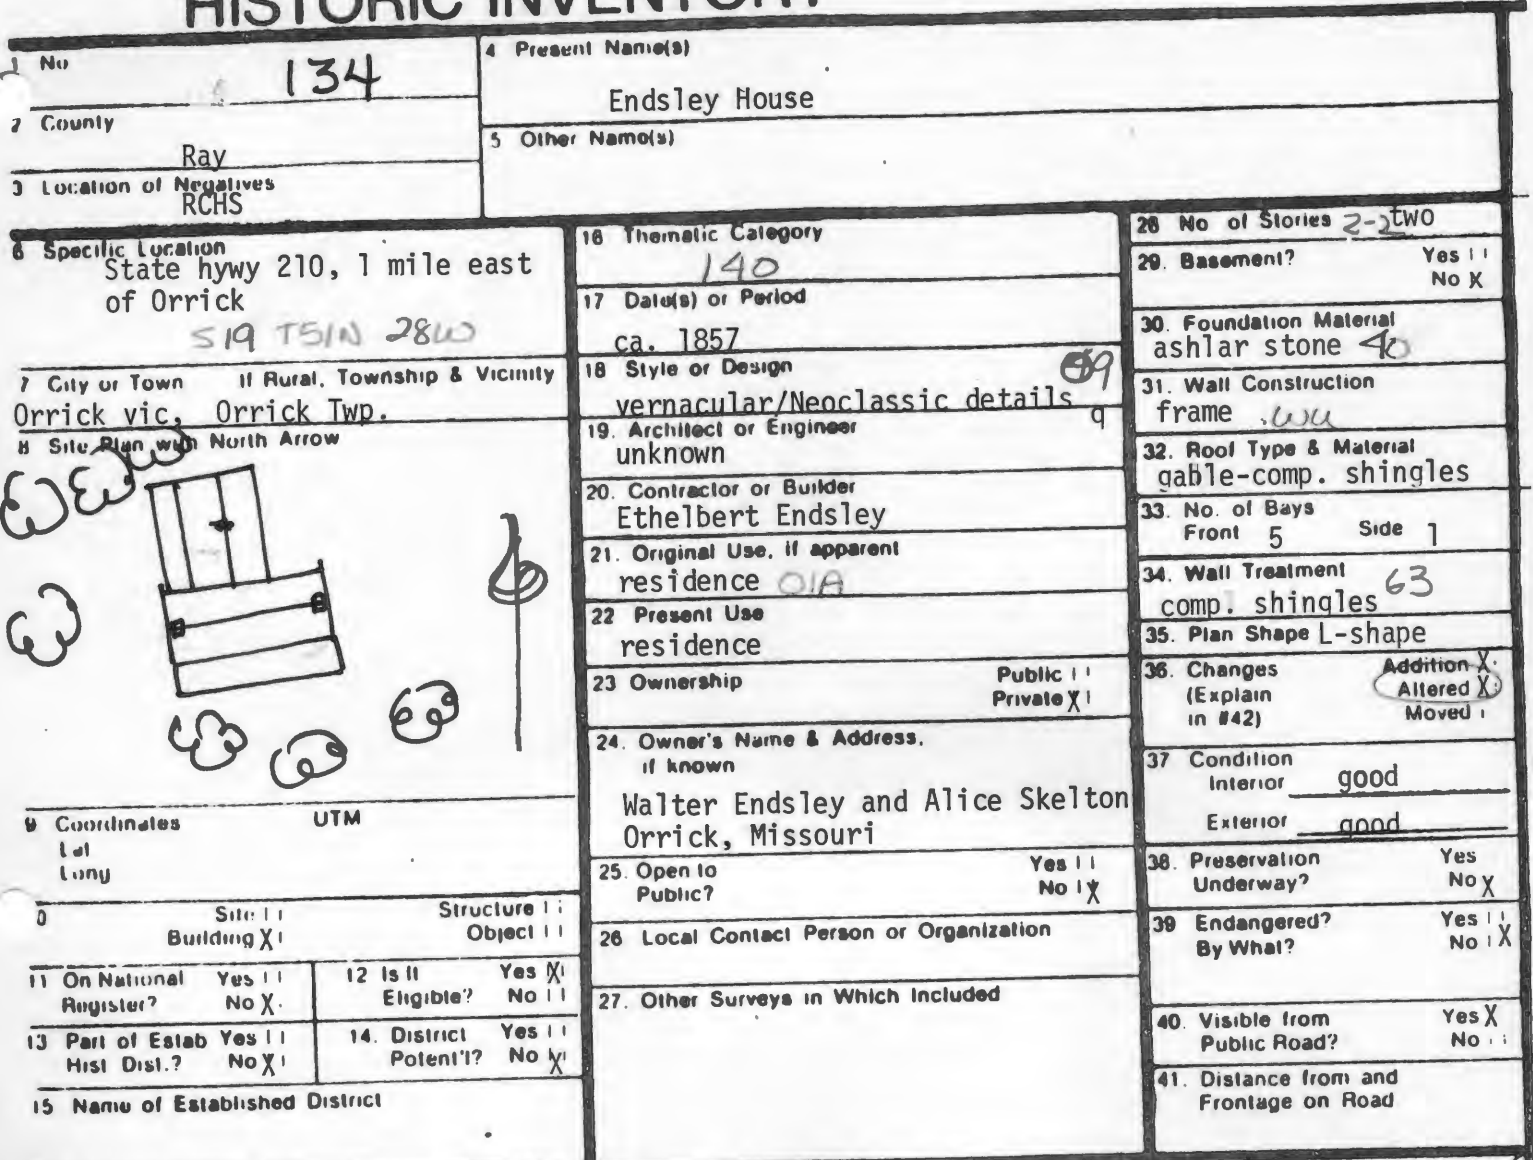 HISTORIC INVENTORY
1 No
134
2 County
Ray
3 Location of Negatives
RCHS
4 Present Name(s)
Endsley House
5 Other Name(s)
6 Specific Location
State hywy 210, 1 mile east
of Orrick
S19 T51N 28W
7 City or Town If Rural, Township & Vicinity
Orrick vic, Orrick Twp.
8 Site Plan with North Arrow
9 Coordinates UTM
Lat
Long
0
Site
Structure
Building X
Object
11 On National Register? Yes No X
12 Is It Eligible? Yes X No
13 Part of Estab Hist Dist.? Yes No X
14. District Potent'l? Yes No X
15 Name of Established District
16 Thematic Category
140
17 Date(s) or Period
ca. 1857
18 Style or Design
vernacular/Neoclassic details
19. Architect or Engineer
unknown
20. Contractor or Builder
Ethelbert Endsley
21. Original Use, if apparent
residence 01A
22 Present Use
residence
23 Ownership Public
Private X
24. Owner's Name & Address,
if known
Walter Endsley and Alice Skelton
Orrick, Missouri
25. Open to Yes
Public? No X
26 Local Contact Person or Organization
27. Other Surveys in Which Included
28 No of Stories 2-2 two
29. Basement? Yes
No X
30. Foundation Material
ashlar stone 40
31. Wall Construction
frame
32. Roof Type & Material
gable-comp. shingles
33. No. of Bays
Front 5 Side 1
34. Wall Treatment
63
comp. shingles
35. Plan Shape L-shape
36. Changes Addition X
(Explain Altered X
in #42) Moved
37 Condition
Interior good
Exterior good
38. Preservation Yes
Underway? No X
39 Endangered? Yes
By What? No X
40. Visible from Yes X
Public Road? No
41. Distance from and
Frontage on Road